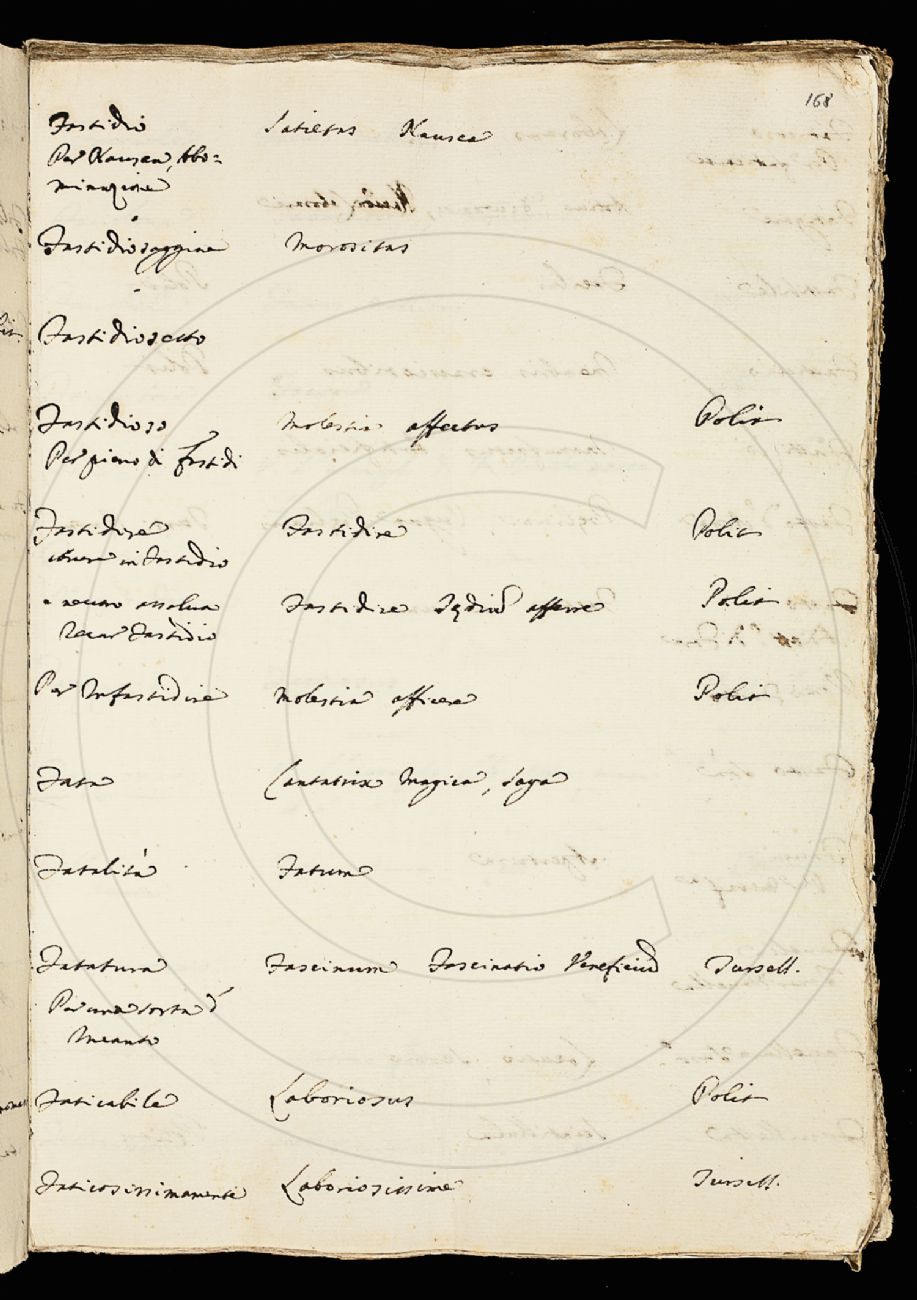 168
Fastidio Satietas Nausea
Per Nausea, Abo=
minazione
Fastidiosaggine Morositas
Fastidiosetto
Fastidioso Molestia affectus Polit
Per pieno di fastidi
Fastidire Fastidire Polit
avere in Fastidio
e neutro assoluto Fastidire Tædiũ afferre Polit
Recar Fastidio
Per Infastidire Molestia afficere Polit
Fata Cantatrix Magica, Saga
Fatalità Fatum
Fatatura Fascinum Fascinatio Veneficiũ Tursell.
Per una sorta d'
Incanto
Faticabile Laboriosus Polit
Faticosissimamente Laboriosissime Tursell.